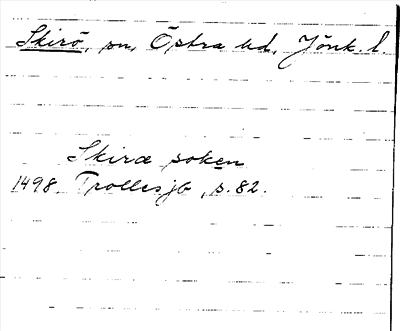 Skirö, sn, Östra hd, Jönk. l.
Skiræ soken
1498 Trollesjb, s. 82.